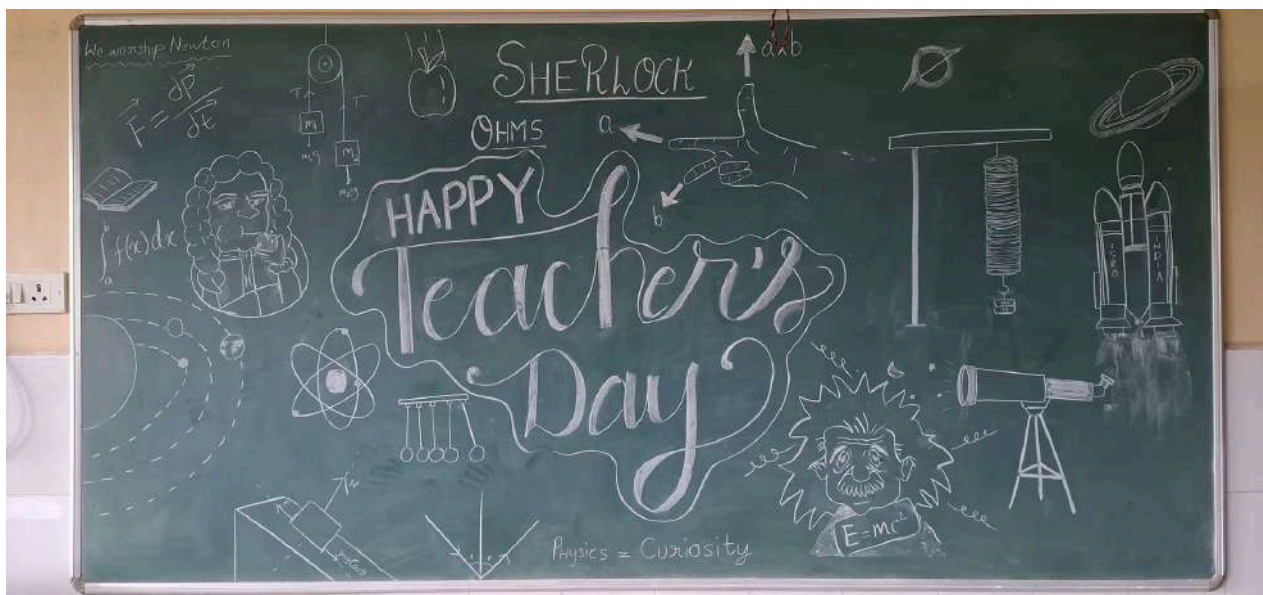 We worship Newton
F = dP/dt
T
T
M₁
m₁g
M₂
SHERLOCK
OHMS
a×b
a
b
HAPPY
Teacher's
Day
∫ₐᵇ f(x) dx
ISRO
INDIA
E=mc²
PHYSICS = CURIOSITY